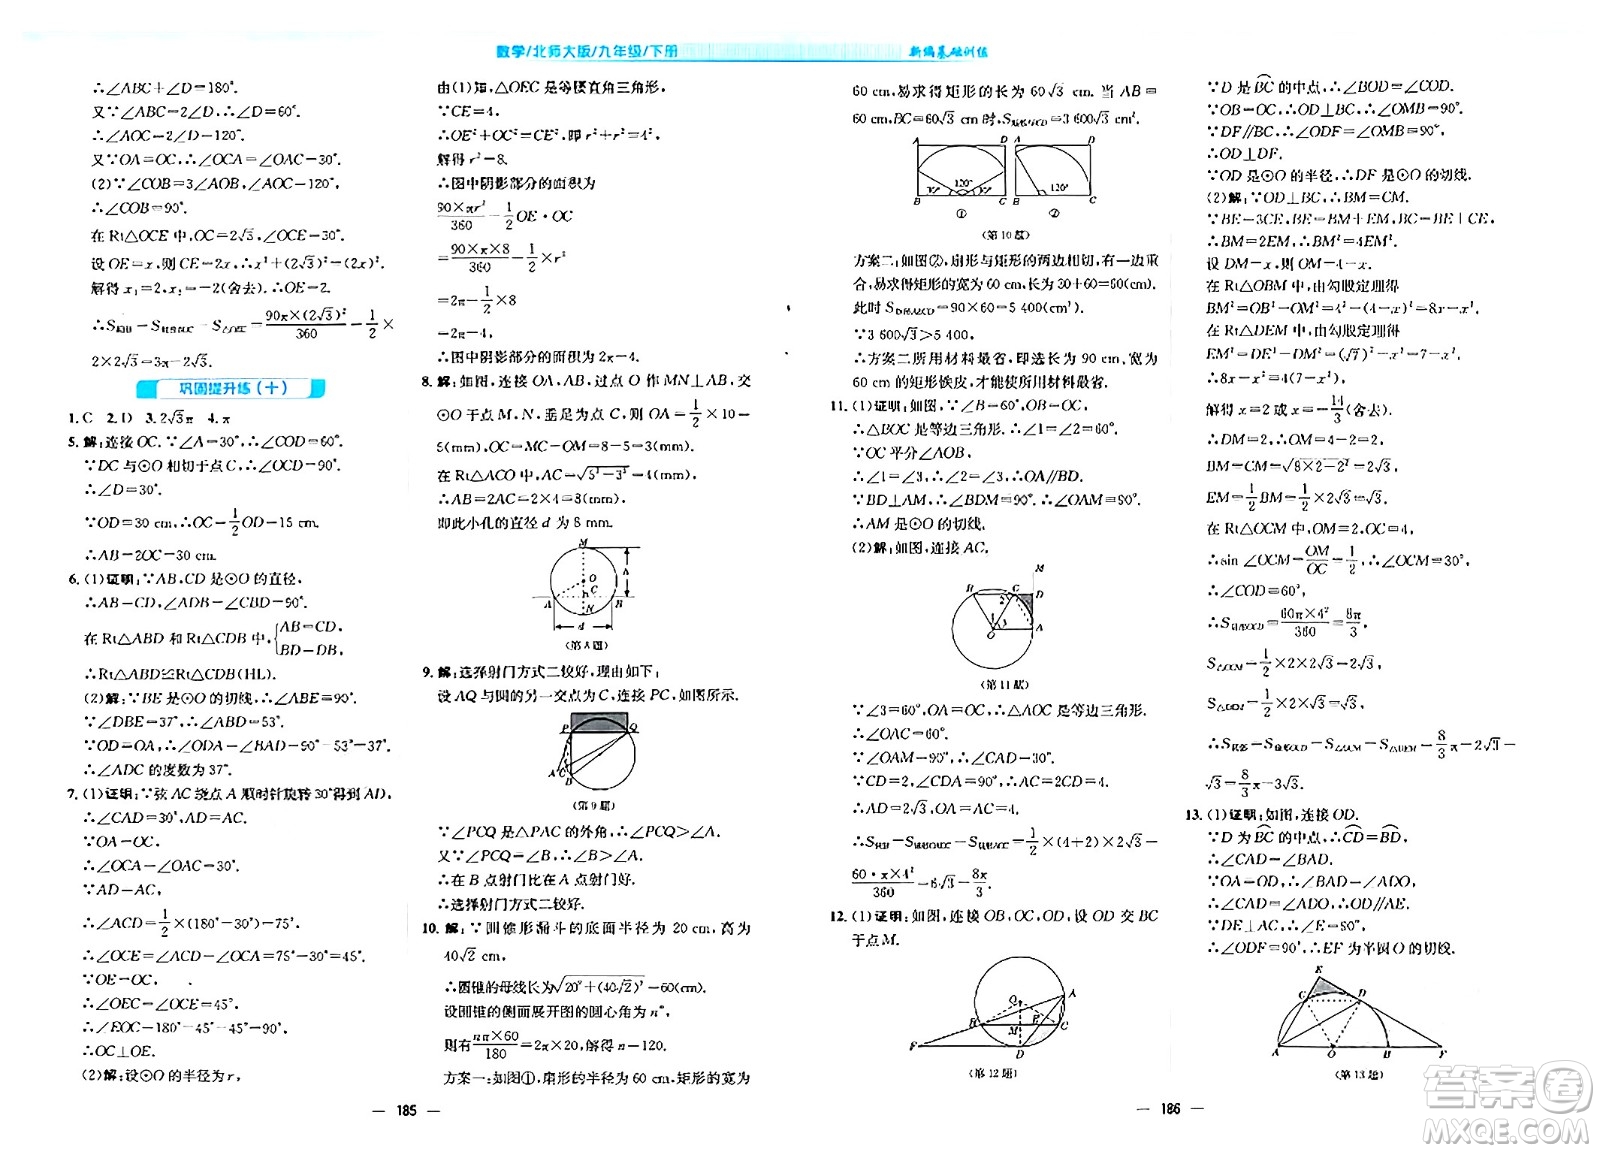 数学/北师大版/九年级/下册
新编基础训练
∴∠ABC+∠D=180°.
又∵∠ABC=2∠D,∴∠D=60°.
∴∠AOC=2∠D=120°.
又∵OA=OC,∴∠OCA=∠OAC=30°.
(2)∵∠COB=3∠AOB,∴∠AOC=120°.
∴∠COB=90°.
在 Rt△OCE 中,OC=2√3,∠OCE=30°.
设 OE=x,则 CE=2x,∴x²+(2√3)²=(2x)².
解得 x₁=2,x₂=-2(舍去).∴OE=2.
∴S阴影=S扇形BOC-S△OEC=90π×(2√3)²/360-1/2×
2×2√3=3π-2√3.
巩固提升练(十)
1.C 2.D 3.2√3π 4.π
5.解:连接 OC.∵∠A=30°,∴∠COD=60°.
∵DC 与⊙O 相切于点 C,∴∠OCD=90°.
∴∠D=30°.
∵OD=30 cm,∴OC=1/2OD=15 cm.
∴AB=2OC=30 cm.
6.(1)证明:∵AB,CD 是⊙O 的直径,
∴AB=CD,∠ADB=∠CBD=90°.
在 Rt△ABD 和 Rt△CDB 中,{AB=CD, BD=DB,
∴Rt△ABD≌Rt△CDB(HL).
(2)解:∵BE 是⊙O 的切线,∴∠ABE=90°.
∵∠DBE=37°,∴∠ABD=53°.
∵OD=OA,∴∠ODA=∠BAD=90°-53°=37°.
∴∠ADC 的度数为 37°.
7.(1)证明:∵弦 AC 绕点 A 顺时针旋转 30°得到 AD,
∴∠CAD=30°,AD=AC.
∵OA=OC,
∴∠OCA=∠OAC=30°.
∵AD=AC,
∴∠ACD=1/2×(180°-30°)=75°.
∴∠OCE=∠ACD-∠OCA=75°-30°=45°.
∵OE=OC,
∴∠OEC=∠OCE=45°.
∴∠EOC=180°-45°-45°=90°.
∴OC⊥OE.
(2)解:设⊙O 的半径为 r,
由(1)知,△OEC 是等腰直角三角形.
∵CE=4,
∴OE²+OC²=CE²,即 r²+r²=4².
解得 r²=8.
∴图中阴影部分的面积为
90×πr²/360-1/2OE·OC
=90×π×8/360-1/2×r²
=2π-1/2×8
=2π-4.
∴图中阴影部分的面积为 2π-4.
8.解:如图,连接 OA,AB,过点 O 作 MN⊥AB,交
⊙O 于点 M,N,垂足为点 C,则 OA=1/2×10=
5(mm),OC=MC-OM=8-5=3(mm).
在 Rt△ACO 中,AC=√(5²-3²)=4(mm).
∴AB=2AC=2×4=8(mm).
即此小孔的直径 d 为 8 mm.
M
O
C
A
N
B
h
d
(第 8 题)
9.解:选择射门方式二较好,理由如下:
设 AQ 与圆的另一交点为 C,连接 PC,如图所示.
P
Q
A
C
B
(第 9 题)
∵∠PCQ 是△PAC 的外角,∴∠PCQ>∠A.
又∵∠PCQ=∠B,∴∠B>∠A.
∴在 B 点射门比在 A 点射门好.
∴选择射门方式二较好.
10.解:∵圆锥形漏斗的底面半径为 20 cm,高为
40√2 cm,
∴圆锥的母线长为√(20²+(40√2)²)=60(cm).
设圆锥的侧面展开图的圆心角为 n°,
则有 nπ×60/180=2π×20,解得 n=120.
方案一:如图①,扇形的半径为 60 cm,矩形的宽为
— 185 —
60 cm,易求得矩形的长为 60√3 cm. 当 AB=
60 cm,BC=60√3 cm 时,S矩形ABCD=3 600√3 cm².
A
D
120°
30°
30°
B
C
①
A
D
120°
B
C
②
(第 10 题)
方案二:如图②,扇形与矩形的两边相切,有一边重
合,易求得矩形的宽为 60 cm,长为 60+30=90(cm).
此时 S矩形ABCD=90×60=5 400(cm²).
∵3 600√3>5 400,
∴方案二所用材料最省,即选长为 90 cm,宽为
60 cm 的矩形铁皮,才能使所用材料最省.
11.(1)证明:如图,∵∠B=60°,OB=OC,
∴△BOC 是等边三角形.∴∠1=∠2=60°.
∵OC 平分∠AOB,
∴∠1=∠3,∴∠2=∠3,∴OA∥BD.
∵BD⊥AM,∴∠BDM=90°.∴∠OAM=90°.
∴AM 是⊙O 的切线.
(2)解:如图,连接 AC.
M
B
C
D
2
1
3
O
A
(第 11 题)
∵∠3=60°,OA=OC,∴△AOC 是等边三角形.
∴∠OAC=60°.
∵∠OAM=90°,∴∠CAD=30°.
∵CD=2,∠CDA=90°,∴AC=2CD=4.
∴AD=2√3,OA=AC=4.
∴S阴影=S梯形OADC-S扇形AOC=1/2×(4+2)×2√3-
60·π×4²/360=6√3-8π/3.
12.(1)证明:如图,连接 OB,OC,OD,设 OD 交 BC
于点 M.
O
A
B
M
E
C
F
D
(第 12 题)
∵D 是 BC 的中点,∴∠BOD=∠COD.
∵OB=OC,∴OD⊥BC,∴∠OMB=90°.
∵DF∥BC,∴∠ODF=∠OMB=90°.
∴OD⊥DF.
∵OD 是⊙O 的半径,∴DF 是⊙O 的切线.
(2)解:∵OD⊥BC,∴BM=CM.
∵BE=3CE,∴BE=BM+EM,BC=4CE.
∴BM=2EM,∴BM²=4EM².
设 DM=x,则 OM=4-x.
在 Rt△OBM 中,由勾股定理得
BM²=OB²-OM²=4²-(4-x)²=8x-x².
在 Rt△DEM 中,由勾股定理得
EM²=DE²-DM²=(√7)²-x²=7-x².
∴8x-x²=4(7-x²).
解得 x=2 或 x=-14/3(舍去).
∴DM=2,∴OM=4-2=2.
∴BM=CM=√(8×2-2²)=2√3.
EM=1/2BM=1/2×2√3=√3.
在 Rt△OCM 中,OM=2,OC=4,
∴sin ∠OCM=OM/OC=1/2,∴∠OCM=30°.
∴∠COD=60°.
∴S扇形OCD=60π×4²/360=8π/3.
S△OCM=1/2×2×2√3=2√3.
S△DEM=1/2×2×√3=√3.
∴S阴影=S扇形COD-S△OCM-S△DEM=8/3π-2√3-
√3=8/3π-3√3.
13.(1)证明:如图,连接 OD.
∵D 为 BC 的中点,∴CD=BD,
∴∠CAD=∠BAD.
∵OA=OD,∴∠BAD=∠ADO.
∴∠CAD=∠ADO,∴OD∥AE.
∵DE⊥AC,∴∠E=90°.
∴∠ODF=90°,∴EF 为半圆 O 的切线.
E
C
D
A
O
B
F
(第 13 题)
— 186 —
答案卷
MXQE.COM